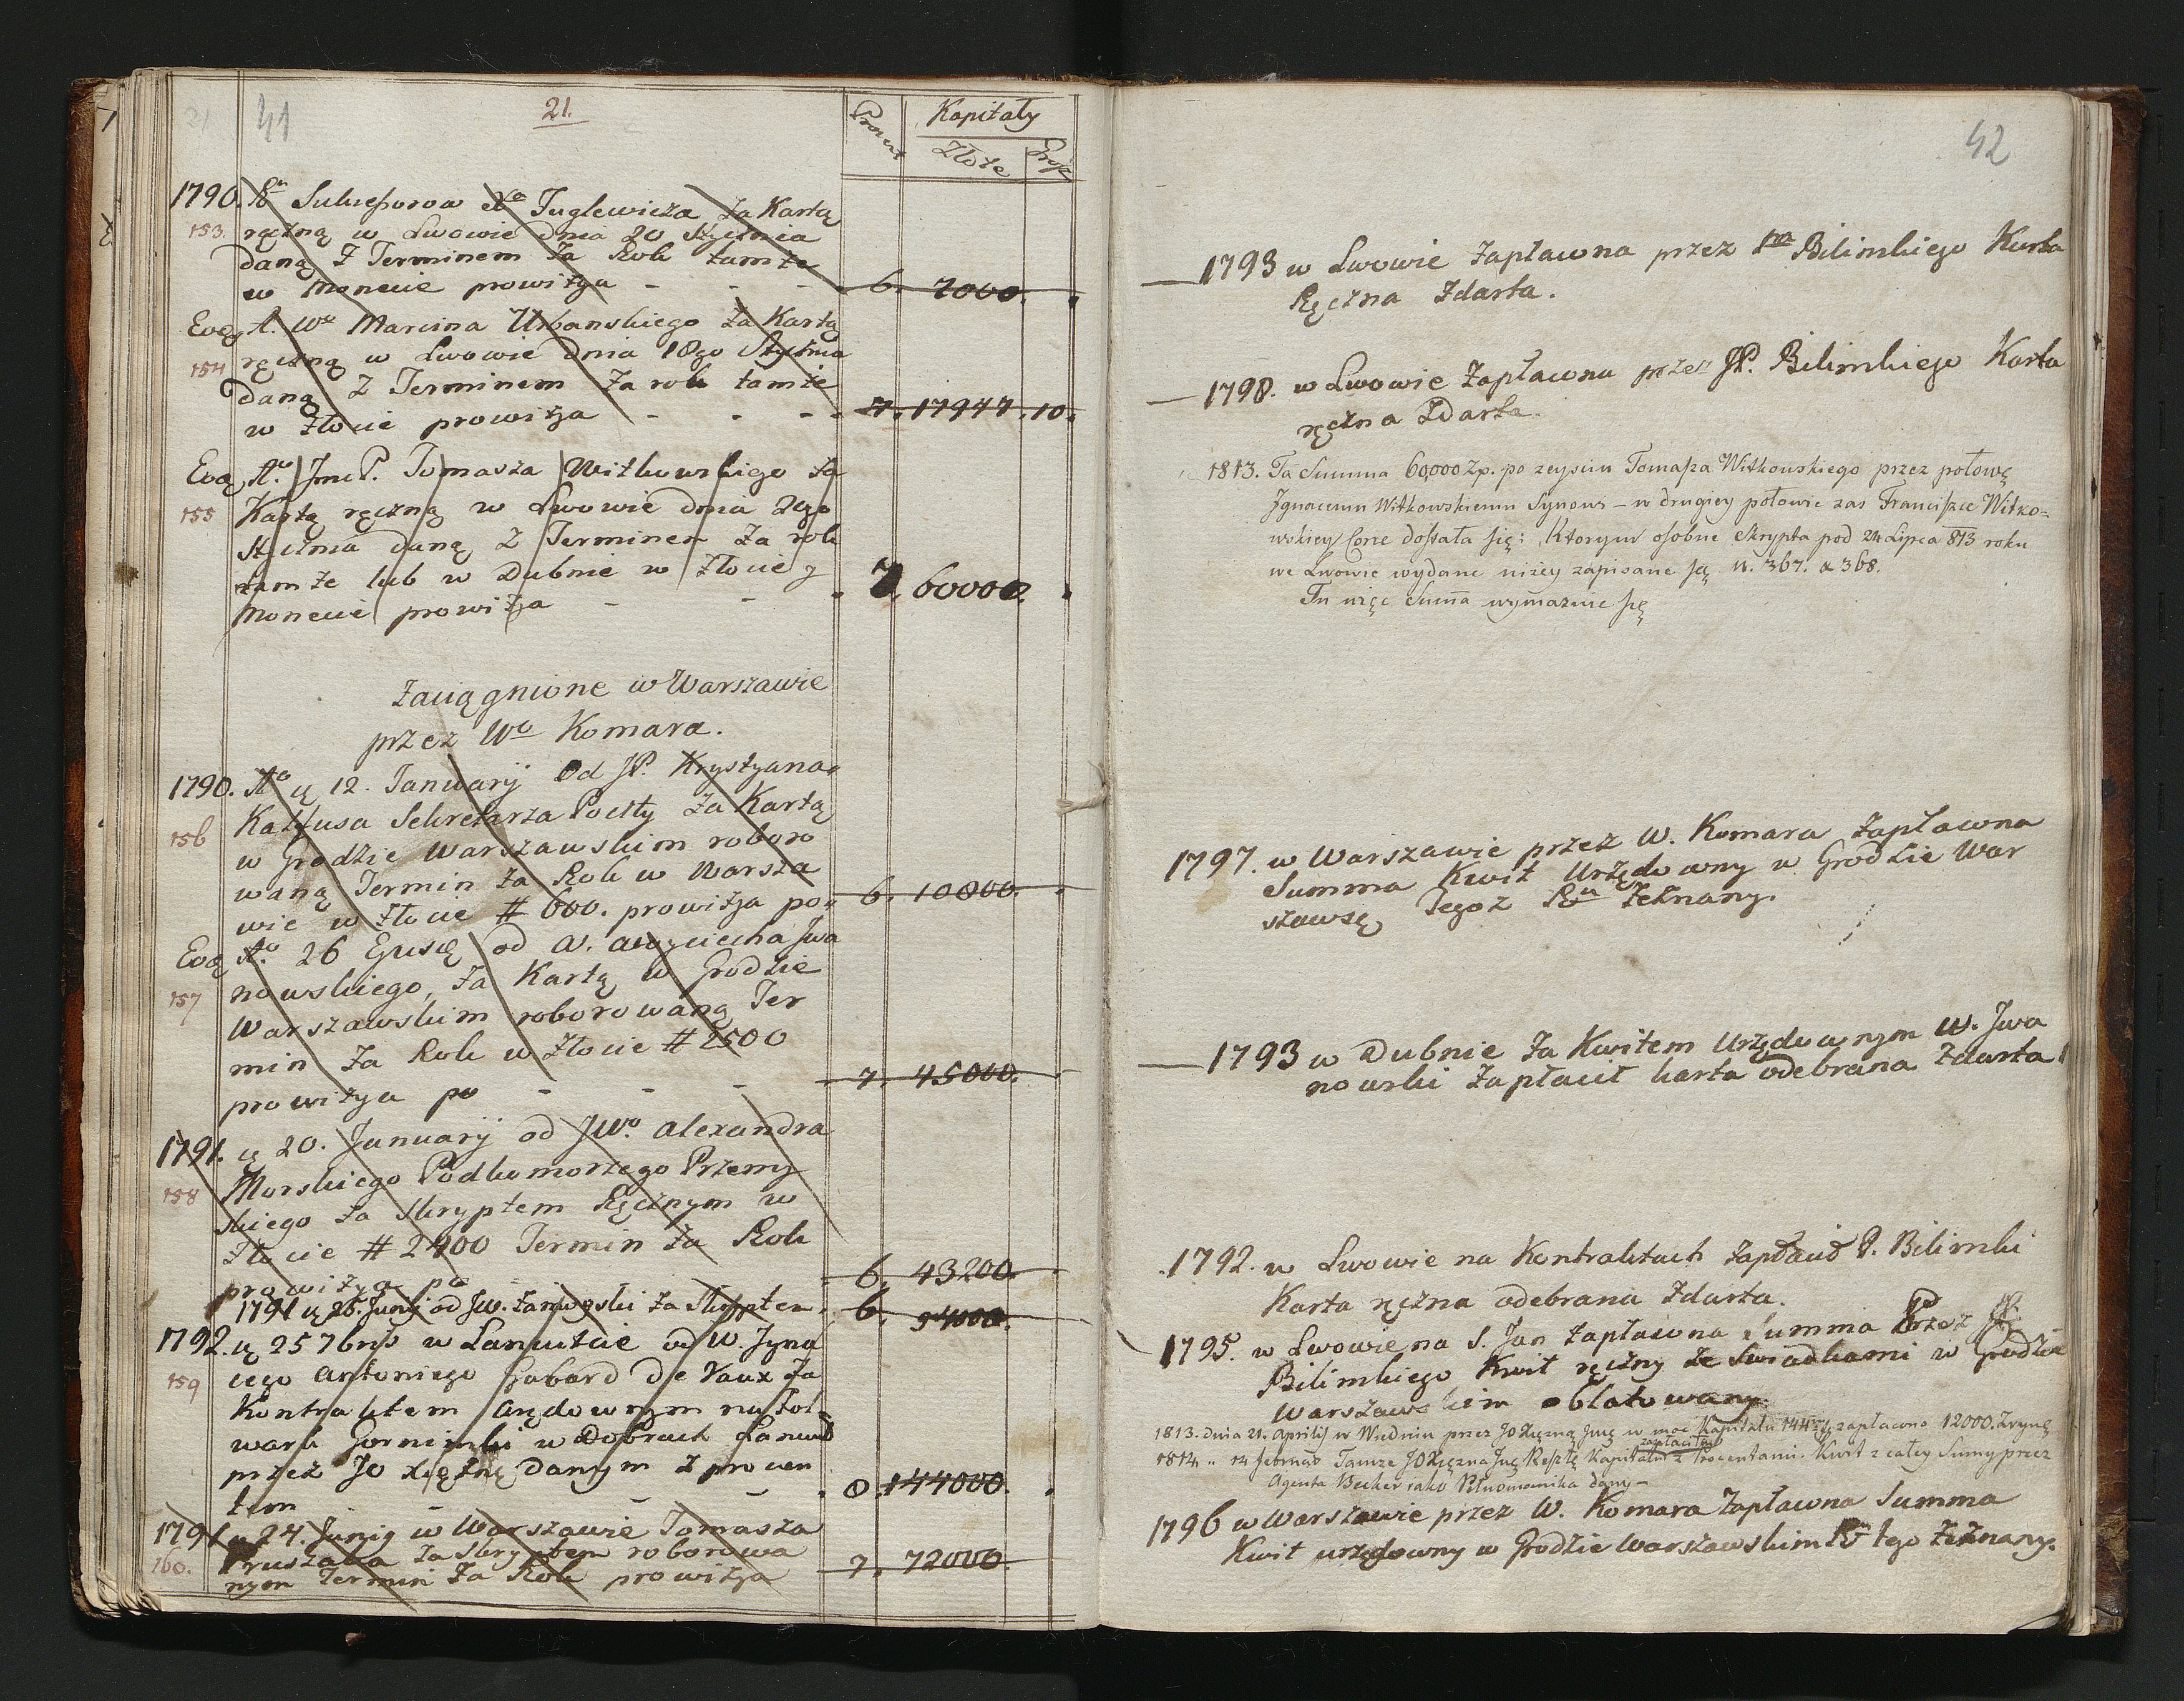 21 41 21.
Procent Kapitały
Złote Grosz
1790. Sukcessorow Tuglewicza Za Kartą
153. ręczną w Lwowie dnia 20 Stycznia
daną Z Terminem Za Rok tamże
w Monecie prowizya - - - 6. 2000.
Eodem Ao. Wo Marcina Urbanskiego Za Kartą
154 ręczną w Lwowie Dnia 18go Stycznia
Daną Z Terminem Za rok tamże
w Złocie prowizya - - - 7. 17977. 10.
Eodem Ao. Jmc P. Tomasza Witkowskiego Za
155 Kartą ręczną w Lwowie dnia 2go
Stycznia daną Z Terminem Za rok
tamże lub w Dubnie w Złocie y
Monecie prowizya - - 7. 60000.
Zaciągnione w Warszawie
przez Wo Komara.
1790. Ao 12. Januarij Od JP. Krystyana
156 Kaltfusa Sekretarza Poczty Za Kartą
w Grodzie Warszawskim roboro
waną Termin Za Rok w Warsza
wie w Złocie # 600. prowizya po 6. 10800.
Eodem Ao. 26 Ejusdem od W. Woyciecha Iwa
157 nowskiego, Za Kartą w Grodzie
Warszawskim roborowaną Ter
min Za Rok w Złocie # 2500
prowizya po - - - 7. 45000.
1791. 20. Januarij od JWo. Alexandra
158 Morskiego Podkomorzego Przemy
skiego Za Skryptem Ręcznym w
Złocie # 2400 Termin Za Rok
prowizya po 6. 43200.
1791 26. Junij od JW. Za Skryptem 6. 54000.
1792. 25 7bris w Lancucie od W. Jgna
159 cego Antoniego Gabard De Vaux Za
Kontraktem Arędownym na Fol
wark Gorninski w Dobrach Lancud
przez JO Xiężnę Danym z procen
tem - - - 8. 144000.
1791 24. Junij w Warszawie Tomasza
160. Pruszaka Za Skryptem roborowa
nym Termin Za Rok prowizya 7. 72000.
42
1793 w Lwowie Zapłacona przez Bilinskiego Karta
Ręczna Zdarta.
1798. w Lwowie Zapłacona przez JP. Bilinskiego Karta
ręczna Zdarta.
1813. Ta Summa 60,000 Zp. po zeyściu Tomasza Witkowskiego przez połowę
Ignacemu Witkowskiemu Synowi – w drugiey połowie zas Franciszce Witko=
wskiey Corce dostała się: Ktorym osobne Skrypta pod 24 Lipca 813 roku
we Lwowie wydane niżey zapisane są N. 367. & 368.
Tu więc Summa wymazuie się
1797. w Warszawie przez W. Komara Zapłacona
Summa Kwit Urzędowny w Grodzie War
szawsę Tegoż Ru Zeznany.
1793 w Dubnie Za Kwitem Urzędownym W. Iwa
nowski Zapłacił karta odebrana Zdarta
1792. w Lwowie na Kontraktach Zapłacił P. Bilinski
Karta ręczna odebrana Zdarta.
1795. w Lwowie na S. Jan Zapłacona Summa Przez JP.
Bilinskiego Kwit ręczny Ze Swiadkami w Grodzie
Warszawskim oblatowany.
1813. Dnia 21. Aprilis w Wiedniu przez JO Xiężną Jmę w moc Kapitału 144 zapłacono 12000.
1814. 14 Februar Tamże JO Xiężna Jmę Resztę Kapitału zapłaciła z Procentami. Kwit z całey Sumy przez
Agenta Becker iako Pełnomocnika dany –
1796 w Warszawie przez W. Komara Zapłacona Summa
Kwit urzędowny w Grodzie Warszawskim Ru tego Zeznany.